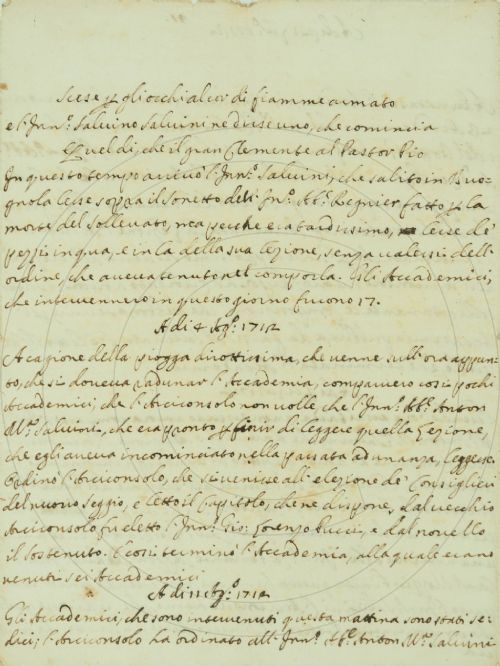 Scese p gliocchi al cor di fiamme armato
e l'Inn.º Salvino Salvini ne disse uno, che comincia
Quel di, che il gran Clemente al Pastor Pio
In questo tempo arrivò l'Inn.º Salvini, che salito in Bu
gnola lesse sopra il sonetto dell'Inn.º Ab.e Regnier fatto p la
morte del Sollevato, ma perche era tardissimo, lesse de'
pezzi in qua, e in la della sua lezione, senza valersi dell'
ordine, che aveva tenuto nel comporla. Gli Accademici,
che intervennero in questo giorno furono 17.
A di 4 Ag.º 1712
A cagione della pioggia dirottissima, che venne sull'ora appun
to, che si doveva radunar l'Accademia, comparvero così pochi
Accademici, che l'Arciconsolo non volle che l'Inn.º Ab.e Anton
M.a Salvini, che era pronto p finir di leggere quella lezione,
che egli aveva incominciato nella passata adunanza, leggesse.
Ordinò l'Arciconsolo, che si venisse all'elezione de' Consiglieri
del nuovo seggio, e letto il Capitolo, che ne dispone, dal vecchio
Arciconsolo fu eletto l'Inn.º Gio: Lorenzo Pucci, e dal novello
il sostenuto. E così terminò l'Accademia, alla quale erano
venuti sei Accademici
A di 11 Ag.º 1712
Gli Accademici, che sono intervenuti questa mattina sono stati se
dici; l'Arciconsolo ha ordinato all'Inn.º Ab.e Anton M.a Salvini